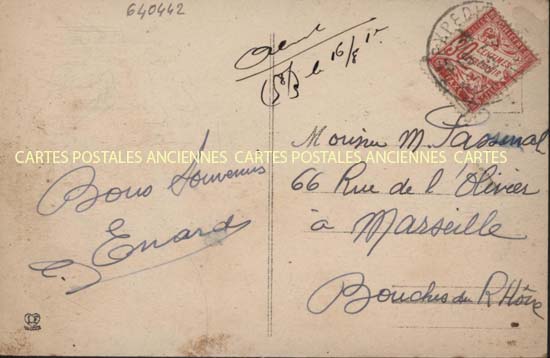 640442
le 16/8
Monsieur M. Passenal
CARTES POSTALES ANCIENNES CARTES POSTALES ANCIENNES CARTES
Bons Souvenirs
66 Rue de l'Olivier
à Marseille
E. Enard
Bouches du Rhône